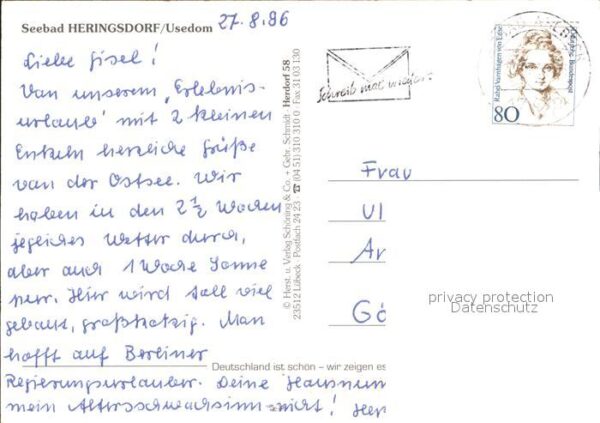 Seebad HERINGSDORF/Usedom 27.8.96
Liebe Gisel!
Von unserem "Erlebnis-
urlaub" mit 2 kleinen
Enkeln herzliche Grüße
von der Ostsee. Wir
haben in den 2 1/2 Wochen
jegliches Wetter durch,
aber auch 1 Woche Sonne
pur. Hier wird toll viel
gebaut, großkotzig. Man
hofft auf Berliner
Regierungsurlauber. Deine Hausnum
mein Altersschwachsinn nicht! Her
Deutschland ist schön – wir zeigen es
© Herst. u. Verlag Schöning & Co. + Gebr. Schmidt · Herdorf 58
23512 Lübeck · Postfach 24 23 · ☎ (04 51) 310 310 0 · Fax 31 03 130
Schreib mal wieder!
Rahel Varnhagen von Ense
Deutsche Bundespost
80
Frau
Ul
Ar
Gö
privacy protection
Datenschutz